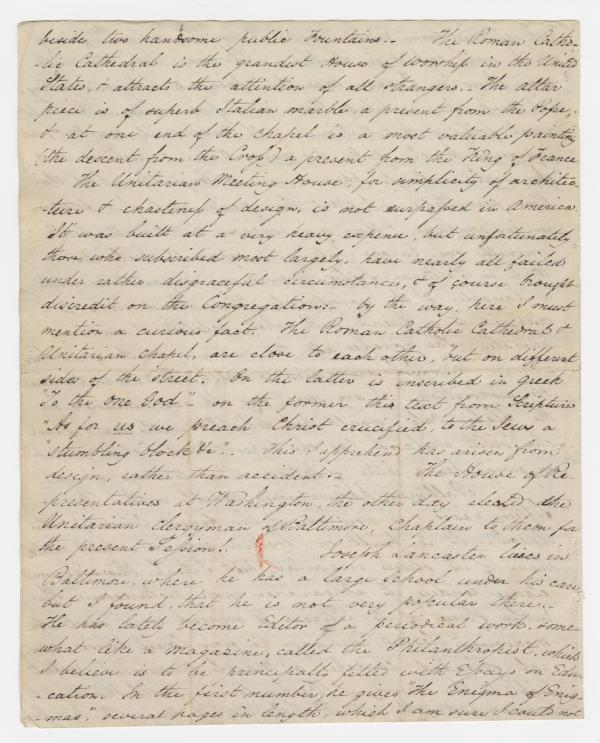 beside two handsome public Fountains.- The Roman Catho-
-lic Cathedral is the grandest House of worship in the United
States, & attracts the attention of all strangers.- The altar
piece is of superb Italian marble, a present from the Pope,
& at one end of the chapel is a most valuable painting
(the descent from the Cross) a present from the King of France
The Unitarian Meeting House, for simplicity of architec-
-ture & chasteness of design, is not surpassed in America
It was built at a very heavy expense, but unfortunately
those who subscribed most largely, have nearly all failed
under rather disgraceful circumstances, & of course brought
discredit on the Congregation:- by the way, here I must
mention a curious fact. The Roman Catholic Cathedral &
Unitarian chapel, are close to each other, but on different
sides of the street. On the latter is inscribed in greek
"To the One God"- on the former this text from Scripture
"As for us we preach Christ crucified, to the Jews a
"stumbling block &c".- This I apprehend has arisen from
design, rather than accident.- The House of Re-
-presentatives at Washington, the other day elected the
Unitarian Clergyman of Baltimore, Chaplain to them for
the present Session!. Joseph Lancaster lives in
Baltimore, where he has a large school under his care,
but I found, that he is not very popular there.-
He has lately become Editor of a periodical work, some-
what like a magazine, called the Philanthropist, which
I believe is to be principally filled with Essays on Edu-
-cation. In the first number, he gives "The Enigma of Enig-
-mas", several pages in length, which I am sure I could not